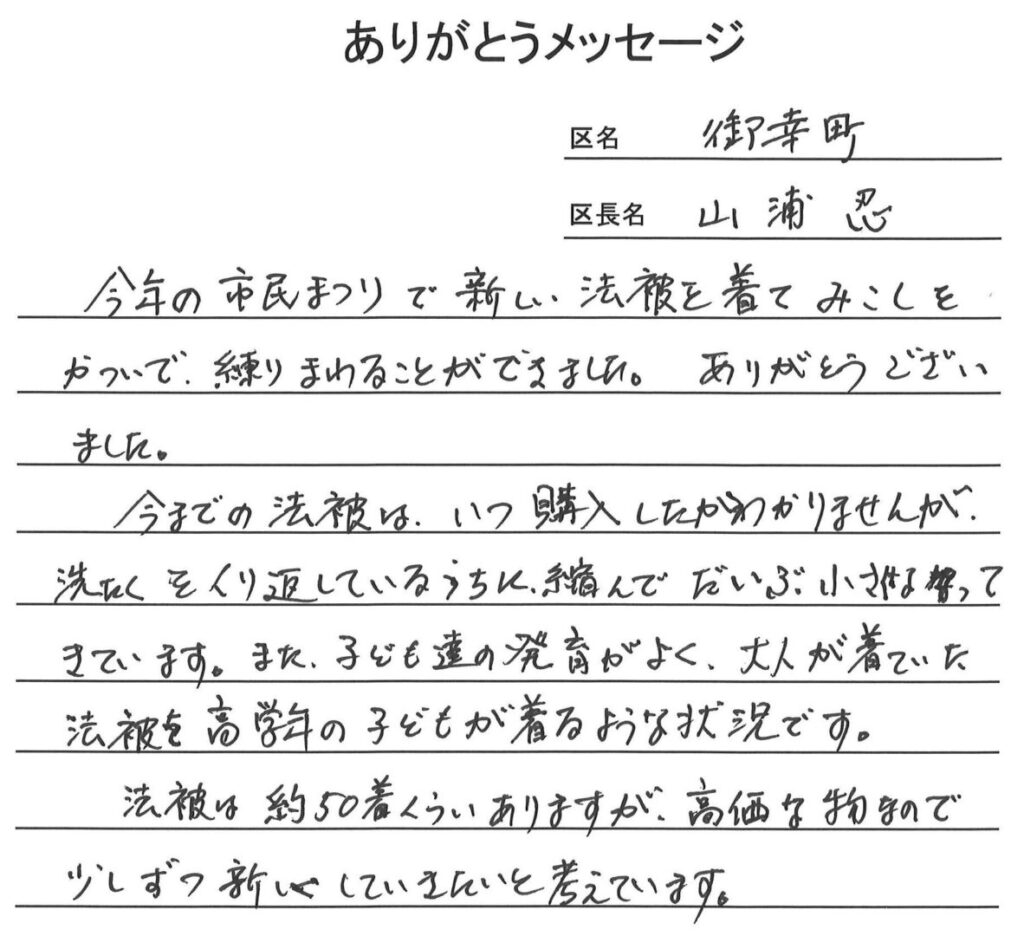 ありがとうメッセージ
区名 御幸町
区長名 山浦 忍
今年の市民まつりで新しい法被を着てみこしを
かついで、練りまわることができました。 ありがとうござい
ました。
今までの法被は、いつ購入したかわかりませんが、
洗たくをくり返しているうちに、縮んでだいぶ小さくなって
きています。また、子ども達の発育がよく、大人が着ていた
法被を高学年の子どもが着るような状況です。
法被は約50着くらいありますが、高価な物なので
少しずつ新しくしていきたいと考えています。